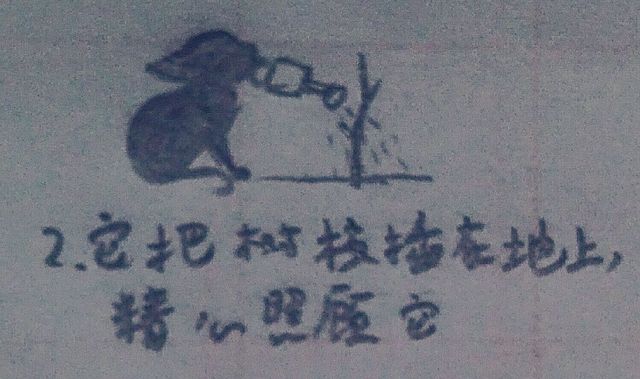 2.它把树枝插在地上,
精心照顾它